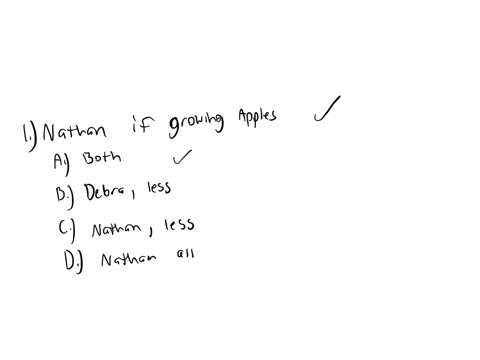 1.) Nathan if growing Apples ✓
A.) Both ✓
B.) Debra, less
C.) Nathan, less
D.) Nathan all